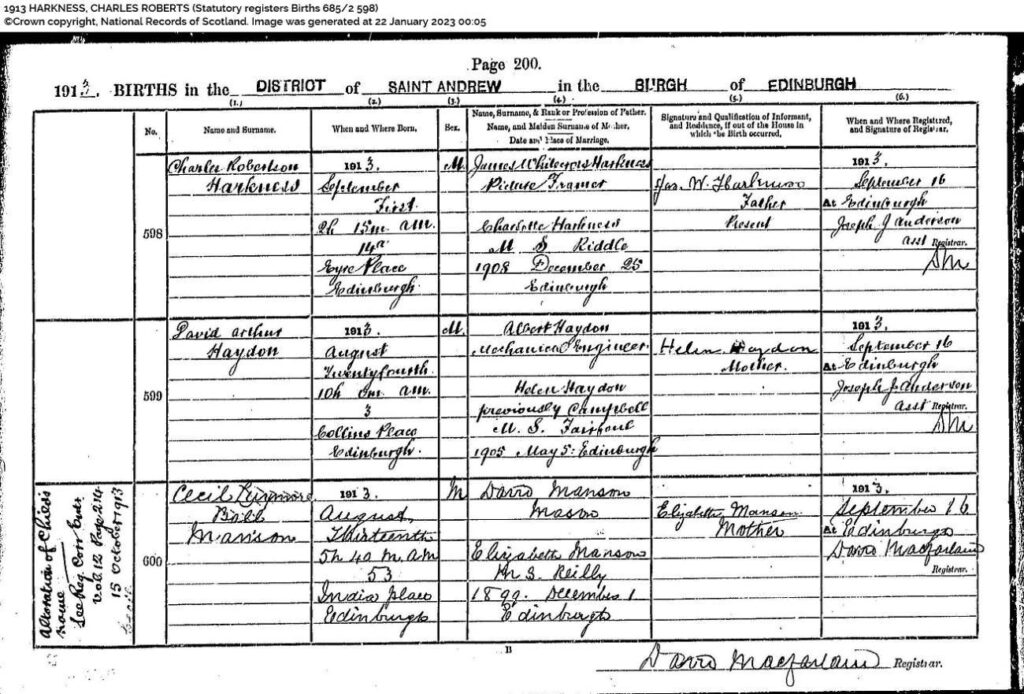 1913 HARKNESS, CHARLES ROBERTS (Statutory registers Births 685/2 598)
©Crown copyright, National Records of Scotland. Image was generated at 22 January 2023 00:05
Page 200.
1913. BIRTHS in the DISTRICT of SAINT ANDREW in the BURGH of EDINBURGH
(1.) (2.) (3.) (4.) (5.) (6.)
No.
Name and Surname.
When and Where Born.
Sex.
Name, Surname, & Rank or Profession of Father.
Name, and Maiden Surname of Mother.
Date and Place of Marriage.
Signature and Qualification of Informant,
and Residence, if out of the House in
which the Birth occurred.
When and Where Registered,
and Signature of Registrar.
598
Charles Robertson
Harkness
1913.
September
First.
2h 15m. a.m.
14a
Eyre Place
Edinburgh
M.
James Whitecross Harkness
Picture Framer
Charlotte Harkness
M S Riddle
1908 December 25
Edinburgh
Jas. W. Harkness
Father
Present
1913.
September 16
At Edinburgh
Joseph J Anderson
asst Registrar.
DM
599
David Arthur
Haydon
1913.
August
Twentyfourth.
10h 0m. a.m.
3
Collins Place
Edinburgh.
M.
Albert Haydon
Mechanical Engineer.
Helen Haydon
previously Campbell
M. S. Fairfoul
1905 May 5: Edinburgh
Helen Haydon
Mother.
1913.
September 16
At Edinburgh
Joseph J. Anderson
asst Registrar.
DM
Alteration of Child's
name
See Reg. Corr Entr
Vol: 12 Page 214
15 October 1913
600
Cecil
Manson
1913.
August,
Thirteenth
5h 40 m. A.M
53
India place
Edinburgh
M
David Manson
Mason
Elizabeth Manson
M. S. Reilly
1899. December 1
Edinburgh
Elizabeth Manson
Mother
1913.
September 16
At Edinburgh
David Macfarlane
Registrar.
B
David Macfarlane Registrar.